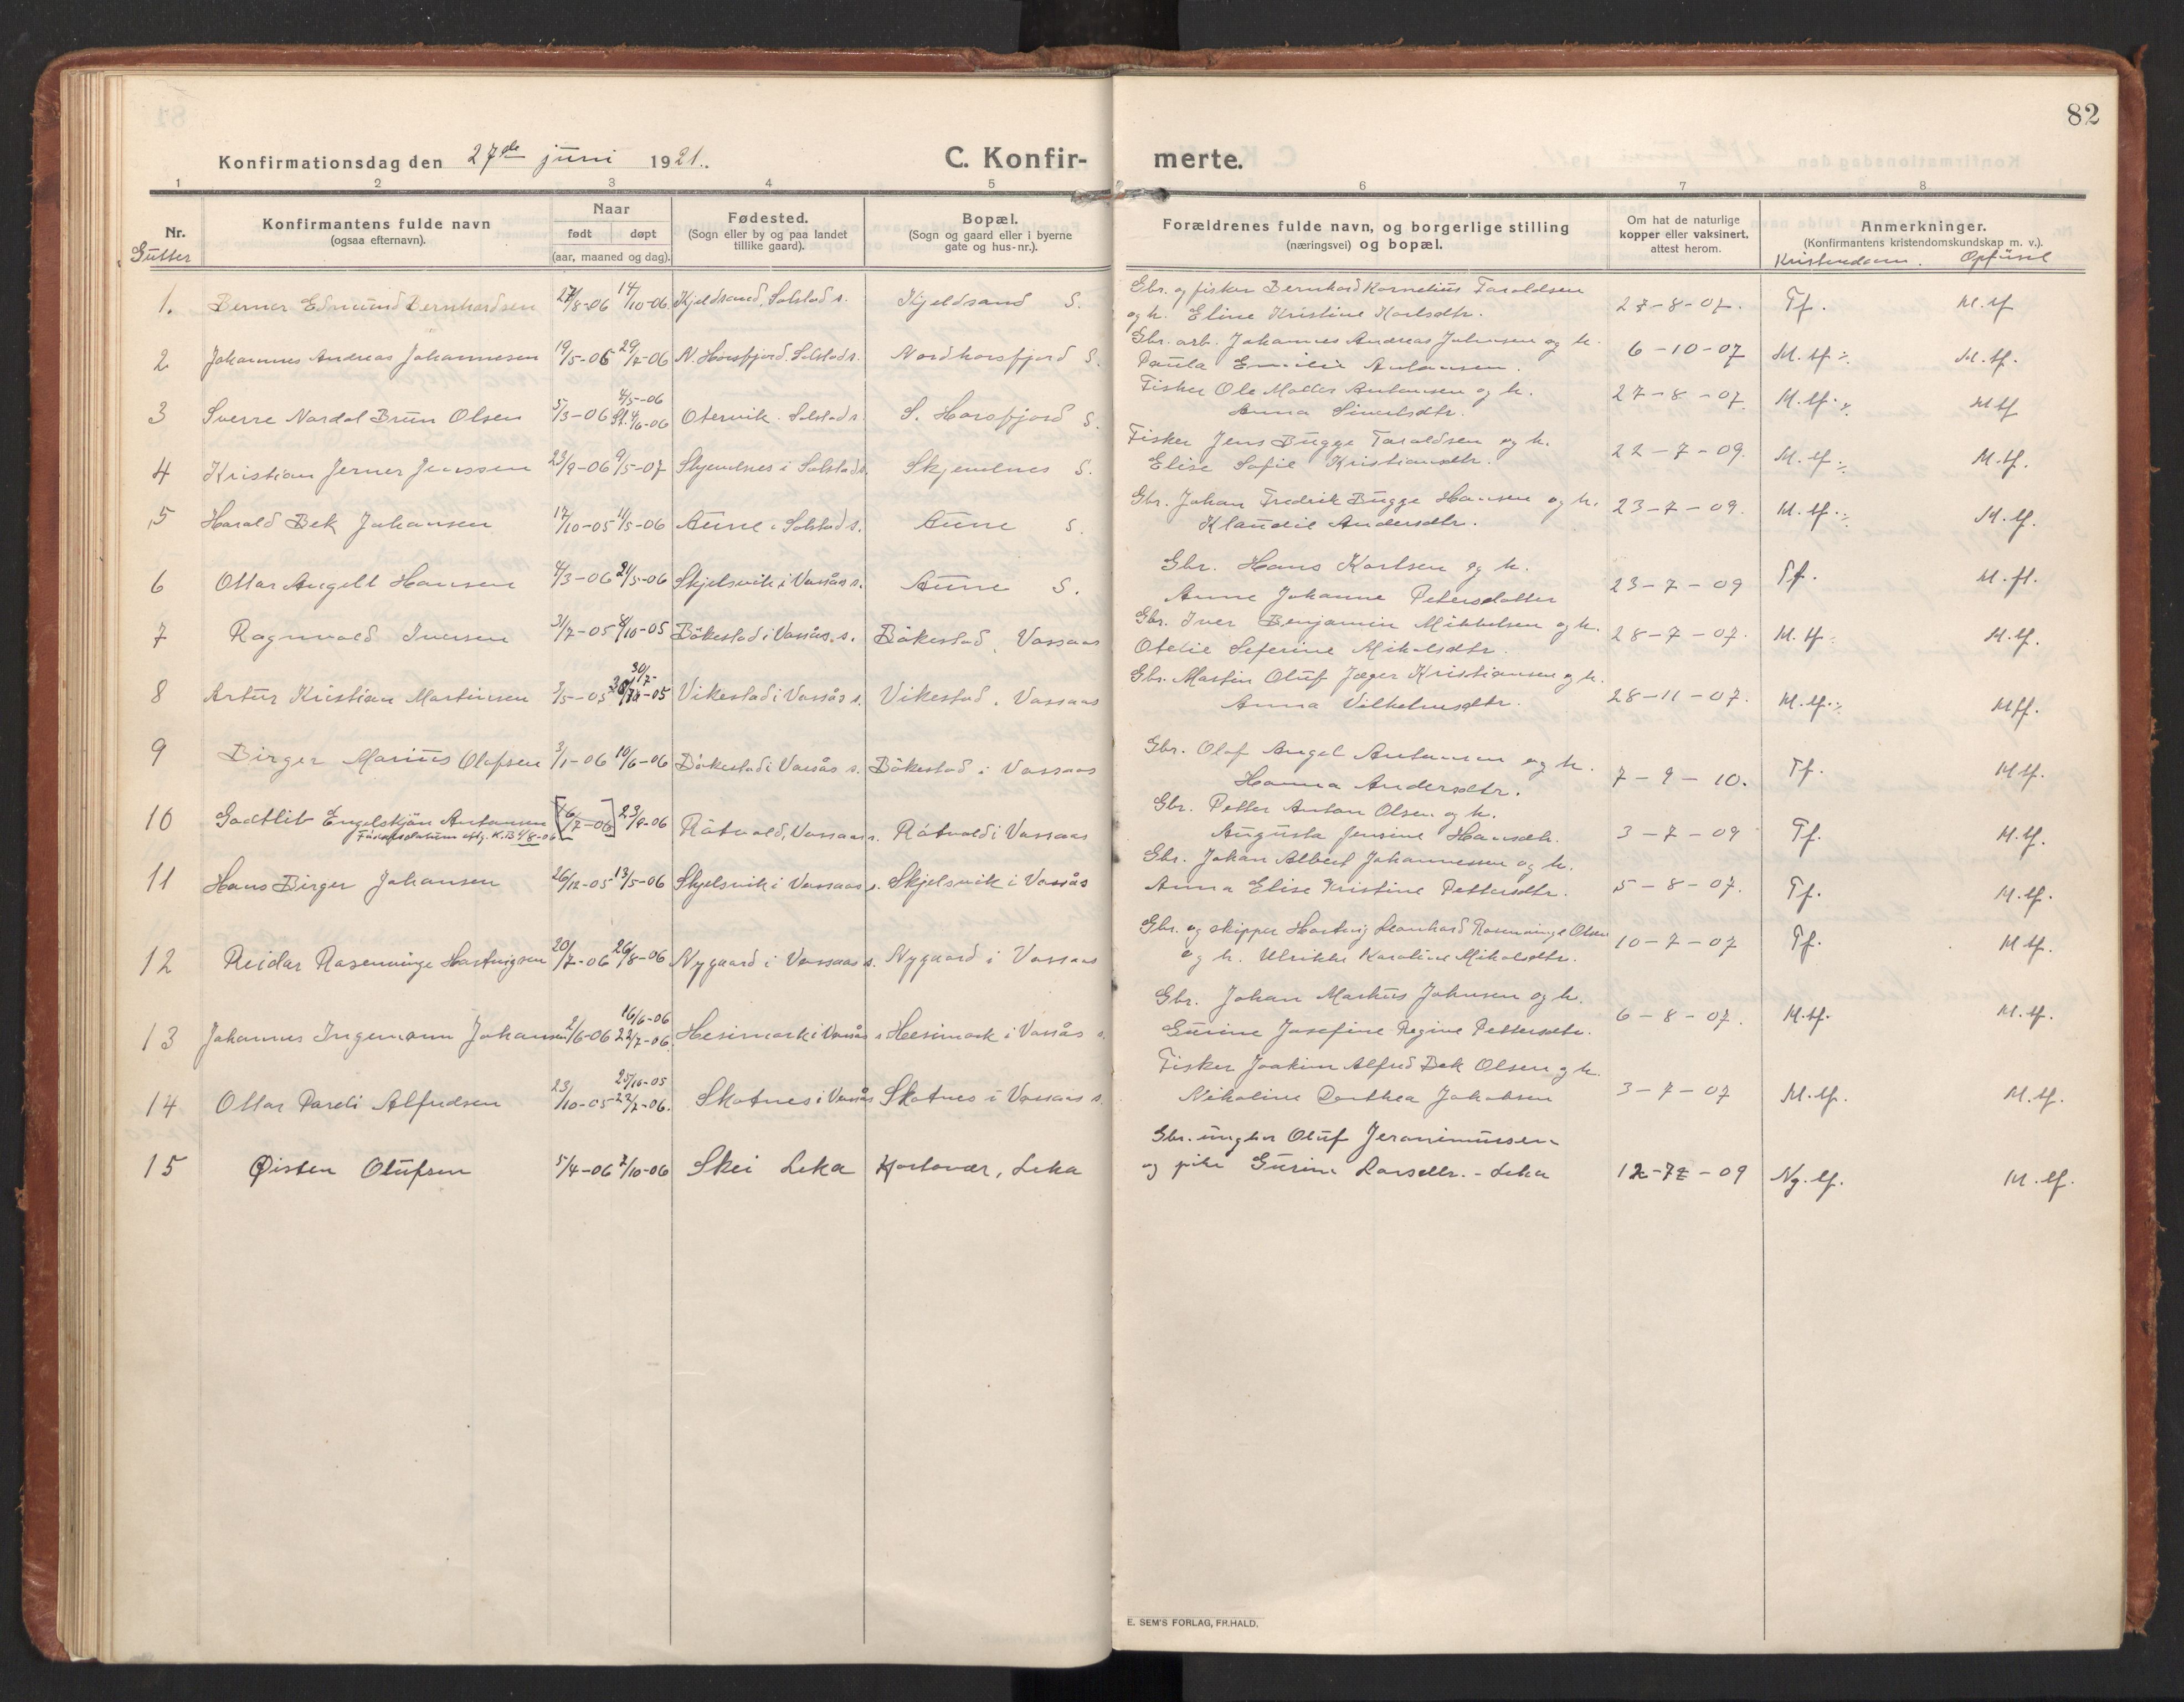 82
Konfirmationsdag den 27de juni 1921.
C. Konfirmerte.
1 2 3 4 5 6 7 8
Nr.
Gutter
Konfirmantens fulde navn
(ogsaa efternavn).
Naar
født døpt
(aar, maaned og dag).
Fødested.
(Sogn eller by og paa landet
tillike gaard).
Bopæl.
(Sogn og gaard eller i byerne
gate og hus-nr.).
Forældrenes fulde navn, og borgerlige stilling
(næringsvei) og bopæl.
Om hat de naturlige
kopper eller vaksinert,
attest herom.
Anmerkninger.
(Konfirmantens kristendomskundskap m. v.).
Kristendom. Opførsel
1. Berner Edmund Bernhardsen 27/8-06 14/10-06 Kjeldsand, Solstad s. Kjeldsand S. Gbr. og fisker Bernhard Kornelius Taraldsen
og h. Eline Kristine Karlsdtr. 27-8-07. Tf. M.tf
2 Johannes Andreas Johannesen 19/5-06 29/7-06 N. Horsfjord. Solstad s. Nordhorsfjord S. Gbr. arb. Johannes Andreas Johnsen og h.
Paula Emilie Antonsen. 6-10-07 M.tf. M.tf.
3 Sverre Nordal Brun Olsen 5/3-06 4/5-06
St. 4/6-06 Otervik. Solstad s. S. Horsfjord S. Fisker Ole Moller Antonsen og h.
Anna Sivertsdtr. 27-8-07. M.tf. M.tf
4 Kristian Jerner Jenssen 23/9-06 9/5-07 Skjevelnes i Solstad s. Skjevelnes S. Fisker Jens Bugge Taraldsen og h.
Elise Sofie Kristiansdtr. 22-7-09. M.tf. M.tf.
5 Harald Bek Johansen 17/10-05 11/5-06 Aune i Solstad s. Aune S. Gbr. Johan Fredrik Bugge Hansen og h.
Klaudie Andersdtr. 23-7-09. M.tf. M.tf.
6 Ottar Angelt Hansen 4/3-06 21/5-06 Skjelsvik i Vassås s. Aune S. Gbr. Hans Karlsen og h.
Anne Johanne Petersdatter 23-7-09 Tf. M.tf.
7 Ragnvald Iversen 31/7-05 8/10-05 Bökestad i Vassås. s. Bökestad, Vassaas Gbr. Iver Benjamin Mikkelsen og h.
Otelie Seferine Mikalsdtr. 28-7-07. M.tf. M.tf.
8 Artur Kristian Martinsen 3/5-05 30/7-05 Vikestad i Vassås s. Vikestad, Vassaas Gbr. Martin Oluf Jæger Kristiansen og h.
Anna Vilhelmsdtr. 28-11-07. M.tf. M.tf.
9 Birger Marius Olafsen 3/1-06 10/6-06 Bökestad i Vassås s. Bökestad i Vassaas Gbr. Olaf Angel Antonsen og h.
Hanna Andersdtr. 7-9-10. Tf. M.tf.
10 Godtlib Engelskjön Antonsen [6/7-06] 23/9-06 Råtvold, Vassaas s. Råtvold i Vassaas Gbr. Petter Anton Olsen og h.
Födselsdatum eftg. K.B. 6/8-06
Augusta Jensine Hansdtr. 3-7-09 Tf. M.tf.
11 Hans Birger Johansen 26/12-05 13/5-06 Skjelsvik i Vassaas s. Skjelsvik i Vassås Gbr. Johan Albert Johannessen og h.
Anna Elise Kristine Pettersdtr. 5-8-07. Tf. M.tf.
12 Reidar Rosenvinge Hartvigsen 20/7-06 26/8-06 Nygaard i Vassaas s. Nygaard i Vassaas Gbr. og skipper Hartvig Leonhard Rosenvinge Olsen
og h. Ulrikke Karoline Mikalsdtr. 10-7-07 Tf. M.tf.
13 Johannes Ingemann Johansen 2/6-06 16/6-06
22/7-06. Hesimark i Vassås s Heesimark i Vassås s. Gbr. Johan Markus Johnsen og h.
Gurine Josefine Regine Pettersdtr. 6-8-07. M.tf. M.tf.
14 Ottar Pareli Alfredsen 23/10-05 25/10-05
22/7-06. Skotnes i Vassås Skotnes i Vassaas s. Fisker Joakim Alfred Bek Olsen og h.
Nikoline Dorthea Jakobsen 3-7-07 M.tf. M.tf.
15 Øisten Olufsen 5/4-06 7/10-06 Skei Leka Hortavær, Leka Gbr. ungkar Oluf Jeronimussen
og pike Gurine Larsdtr. - Leka 12-7-09 Ng. tf. M.tf.
E. SEM'S FORLAG, FR.HALD.